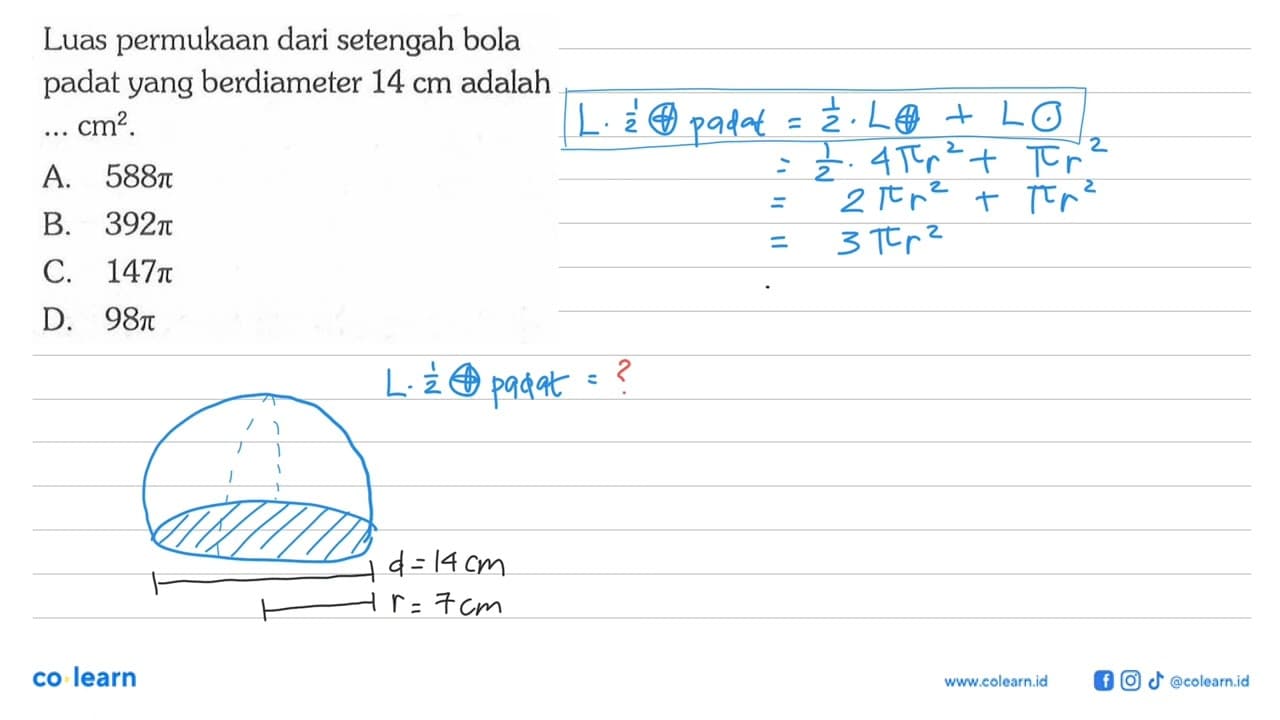 Luas permukaan dari setengah bola
padat yang berdiameter 14 cm adalah
... cm².
A. 588π
B. 392π
C. 147π
D. 98π
L. ½ padat = ½ . L + L
= ½ . 4πr² + πr²
= 2πr² + πr²
= 3πr²
L. ½ padat = ?
d = 14 cm
r = 7 cm
co learn
www.colearn.id
@colearn.id